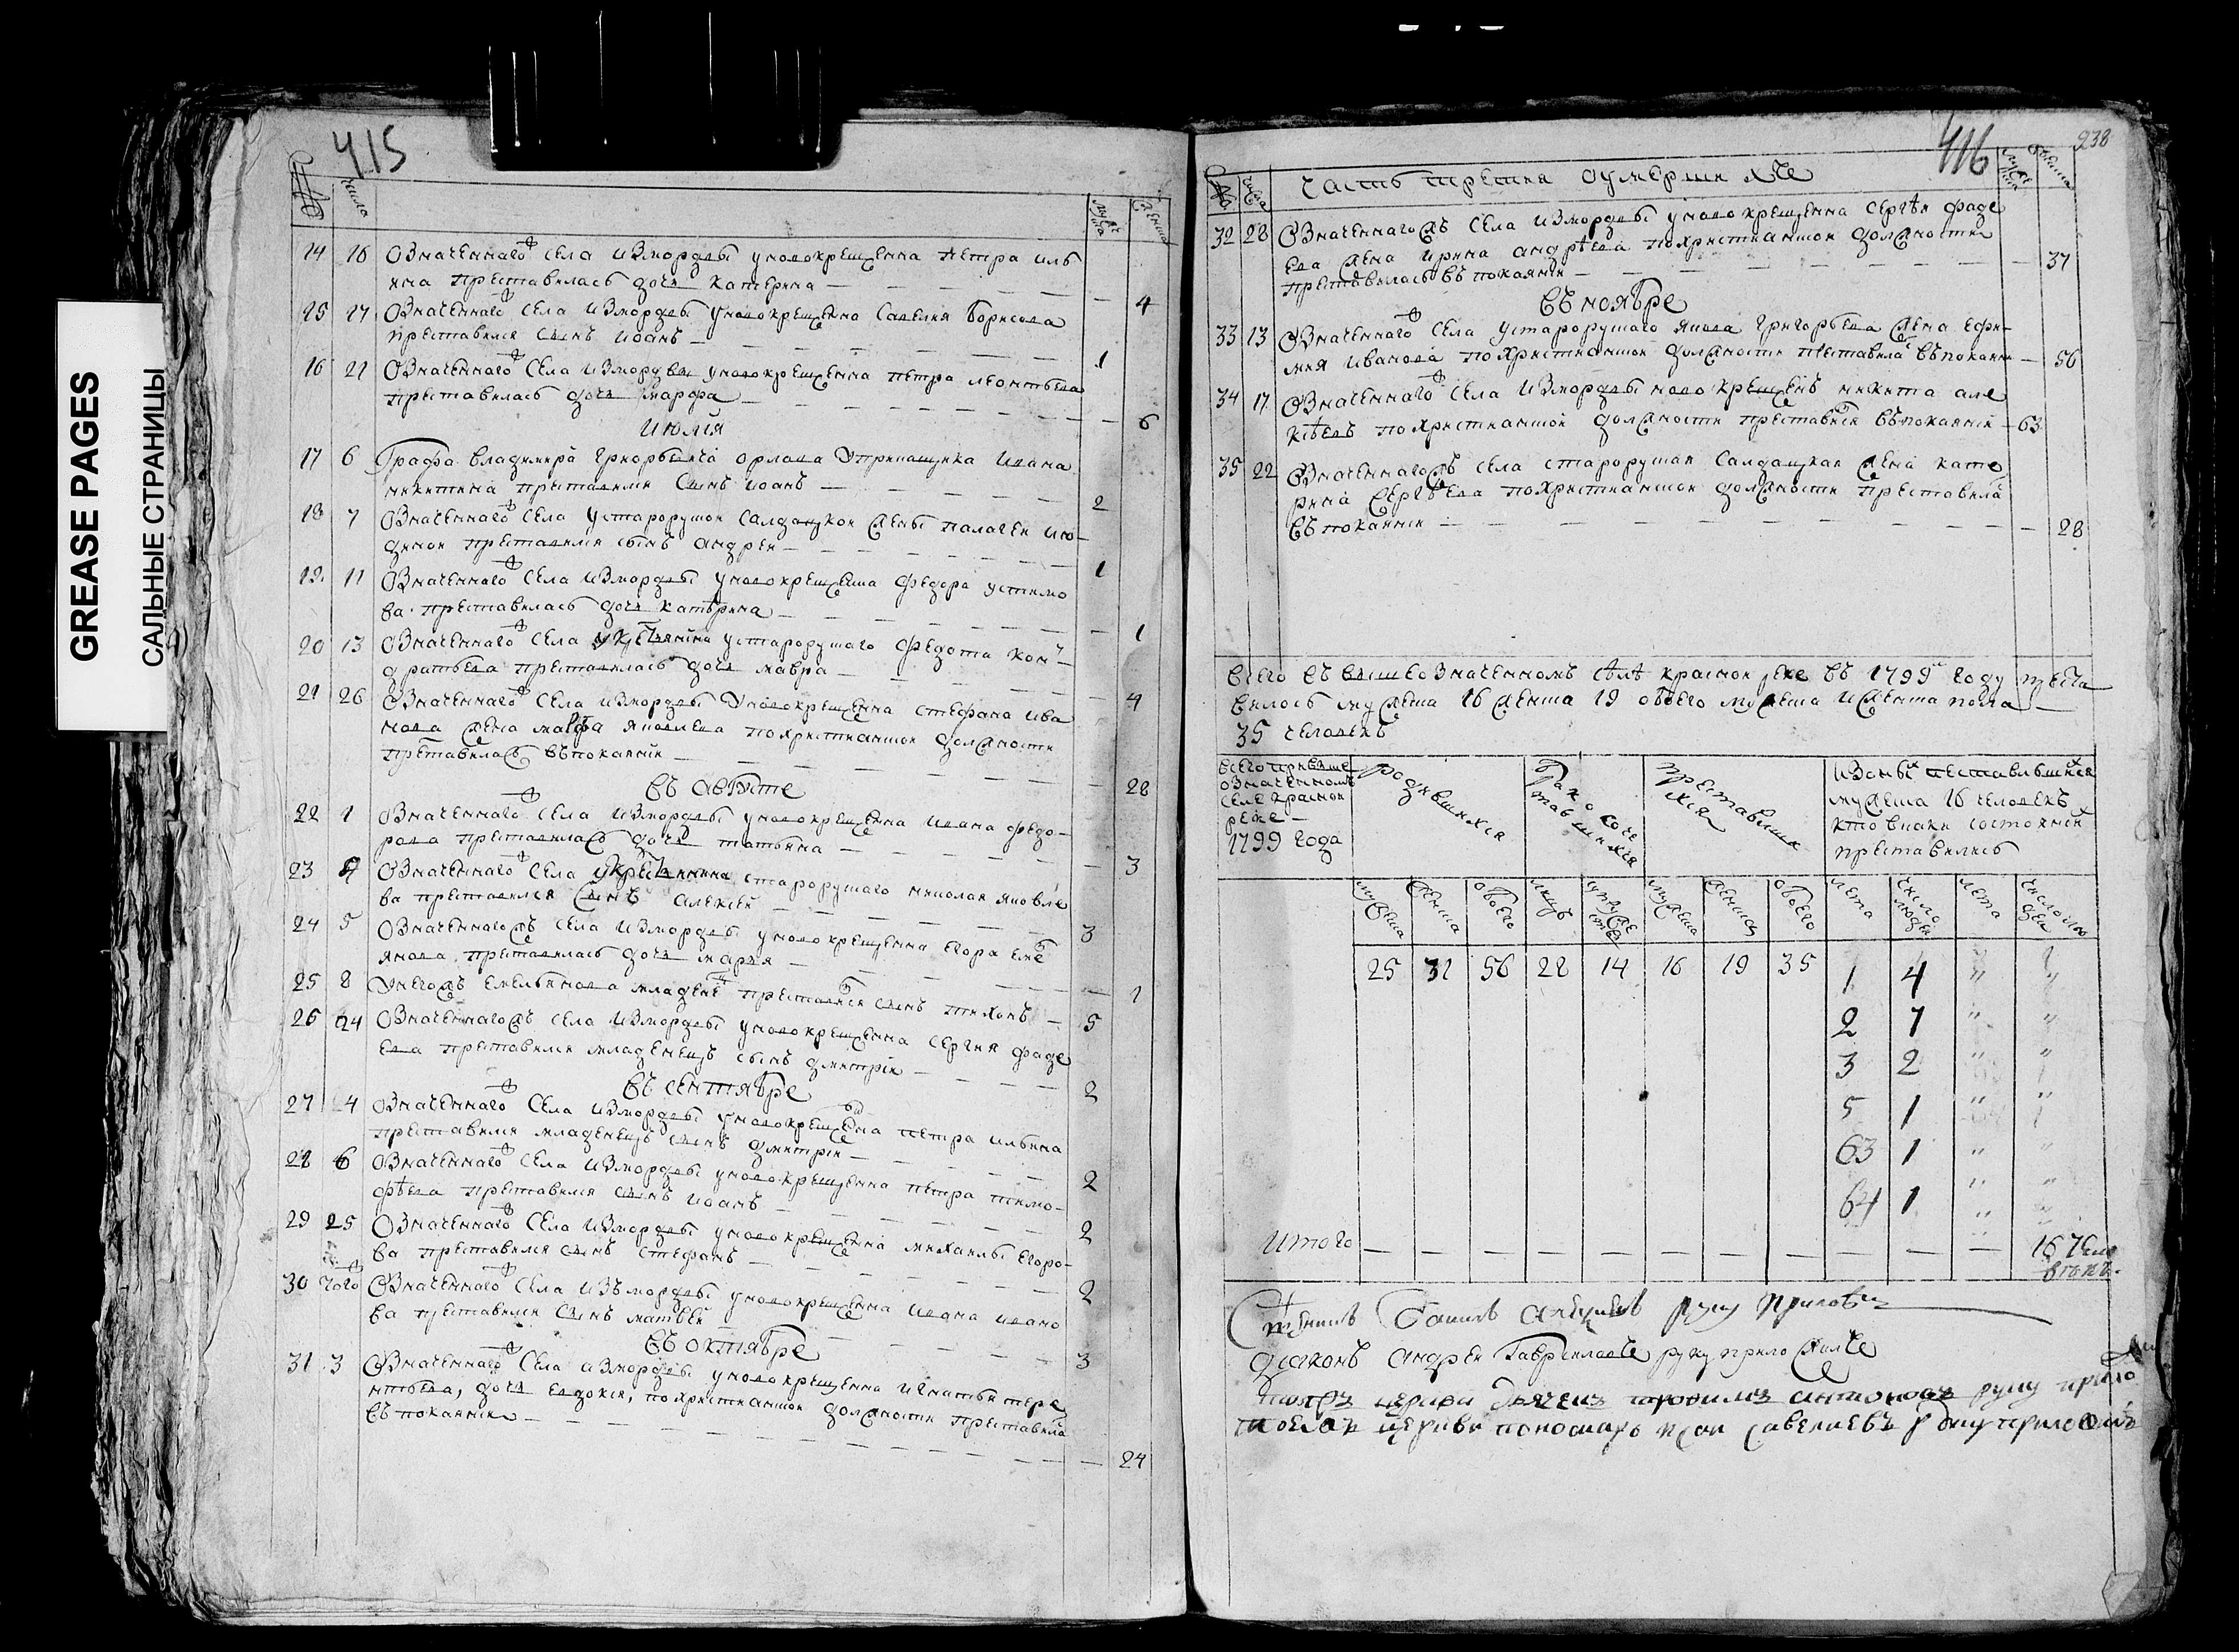 GREASE PAGES
САЛЬНЫЕ СТРАНИЦЫ
415
число
14 16 Означеннаго села измордвы уновокрещенна петра иль
ина преставилась дочь катерина — 4
15 17 Означеннаго села измордвы уновокрещенна савелия борисова
преставился сынъ иоанъ — 1
16 21 Означеннаго села измордвы уновокрещенна петра леонтьева
преставилась дочь марфа — 6
июлия
17 6 Графа владимира григорьевича орлова уприкащика ивана
никитина преставился сынъ иоанъ — 2
18 7 Означеннаго села устарорускои салдацкои жены палагеи
преставился сынъ андреи — 1
19 11 Означеннаго села измордвы уновокрещенна федора устино
ва преставилась дочь катерина — 1
20 13 Означеннаго села устарорускаго федота кон
дратьева преставилась дочь мавра — 4
21 26 Означеннаго села измордвы уновокрещенна стефана ива
нова жена марфа яковлева похристианскои должности
преставилась въ покаянии — 28
въ августе
22 1 Означеннаго села измордвы уновокрещенна ивана федо-
рова преставилась дочь татьяна — 3
23 4 Означеннаго села старорускаго николая яковле
ва преставился сынъ алексеи — 3
24 5 Означеннагожъ села измордвы уновокрещенна егора емель
янова преставилась дочь марья — 1
25 8 Унегожъ емельянова младенецъ преставился сынъ тихонъ — 5
26 24 Означеннагожъ села измордвы уновокрещенна сергия фаде
ева преставился младенецъ сынъ дмитрии — 2
въ сентябре
27 4 Означеннаго села измордвы уновокрещенна петра ильина
преставился младенецъ сынъ дмитрии — 2
28 6 Означеннаго села измордвы уновокрещенна петра тимо-
феева преставился сынъ иоанъ — 2
29 25 Означеннаго села измордвы уновокрещенна михаилы егоро-
ва преставился сынъ стефанъ — 2
30 тогожъ Означеннаго села изъмордвы уновокрещенна ивана ивано
ва преставился сынъ матвеи — 3
въ октябре
31 3 Означеннаго села измордвы уновокрещенна игнатья тере
нтьева, дочь евдокия, похристианскои должности преставила
въ покаянии — 24
416
238
числа
часть третия оумершихъ
32 28 Означеннагожъ села измордвы уновокрещенна сергея фаде
ева жена ирина андреева похристианскои должности
преставилась въ покаянии — 37
въ ноябре
33 13 Означеннаго села устарорускаго якова григорьева жена ефи-
мия иванова похристианскои должности преставилась въ покаянии — 56
34 17 Означеннаго села измордвы новокрещенъ никита але
ксеевъ похристианскои должности преставился въ покаянии — 63
35 22 Означеннагожъ села староруская салдацкая жена кате
рина сергеева похристианскои должности преставила
въ покаянии — 28
всего въ вышеозначенномъ селе краснои реке въ 1799 году преста
вилось мужеска 16 женска 19 обоего мужеска и женска пола
35 человекъ
всего при выше
означенномъ
селе краснои
реке
1799 года
родившихся
бракосоче
тавшихся
преставивши
хся
изоныхъ преставившихся
мужеска 16 человекъ
кто в какихъ состоянии
преставились
мужеска женска обоего мужеска женска обоего лета число людеи лета число людеи
25 31 56 28 14 16 19 35 1 4 " "
2 7 " "
3 2 " "
5 1 " "
63 1 " "
64 1 " "
Итого — 16 чело
векъ.
руку приложилъ
диаконъ андреи гавриловъ руку приложилъ
церкви дьячекъ трофимъ антоновъ руку прило
тоежъ церкви пономарь савелиевъ руку приложилъ